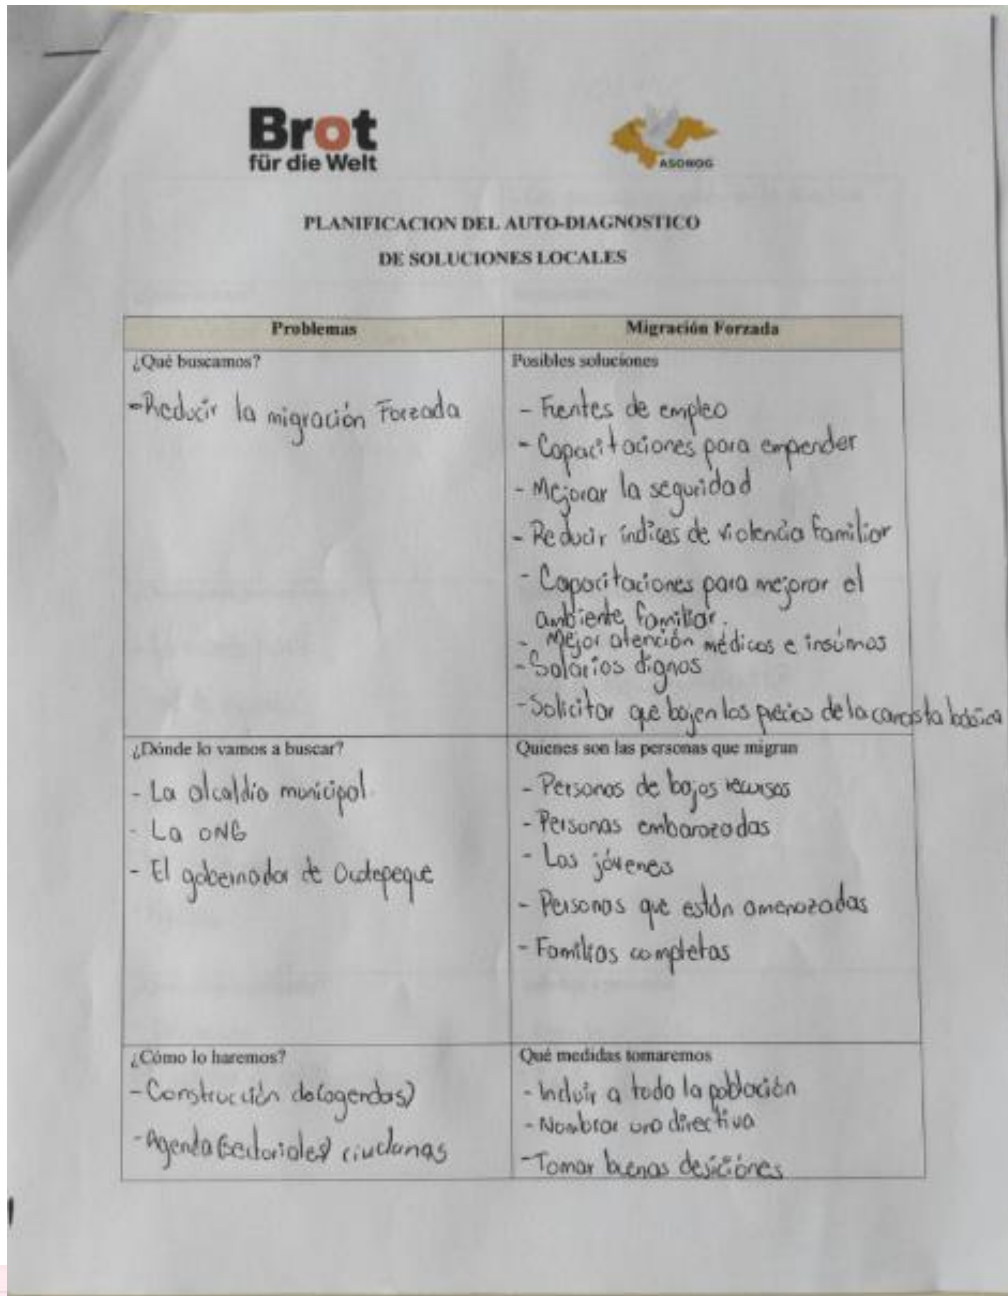 Brot
für die Welt
ASONOG
PLANIFICACION DEL AUTO-DIAGNOSTICO
DE SOLUCIONES LOCALES
Problemas
Migración Forzada
¿Qué buscamos?
- Reducir la migración Forzada
Posibles soluciones
- Fuentes de empleo
- Capacitaciones para empender
- Mejorar la seguridad
- Reducir índices de violencia familiar
- Capacitaciones para mejorar el
ambiente familiar.
- Mejor atención médicas e insúmos
- Salarios dignos
- Solicitar que bajen los precios de la canasta básica
¿Dónde lo vamos a buscar?
- La alcaldía municipal
- La ONG
- El gobernador de
Quienes son las personas que migran
- Personas de bajos recursos
- Personas embarazadas
- Los jóvenes
- Personas que están amenazadas
- Familias completas
¿Cómo lo haremos?
- Construcción de (agendas)
- Agenda (sectoriales)
Qué medidas tomaremos
- Incluir a todo la población
- Nombrar una directiva
- Tomar buenas desiciónes